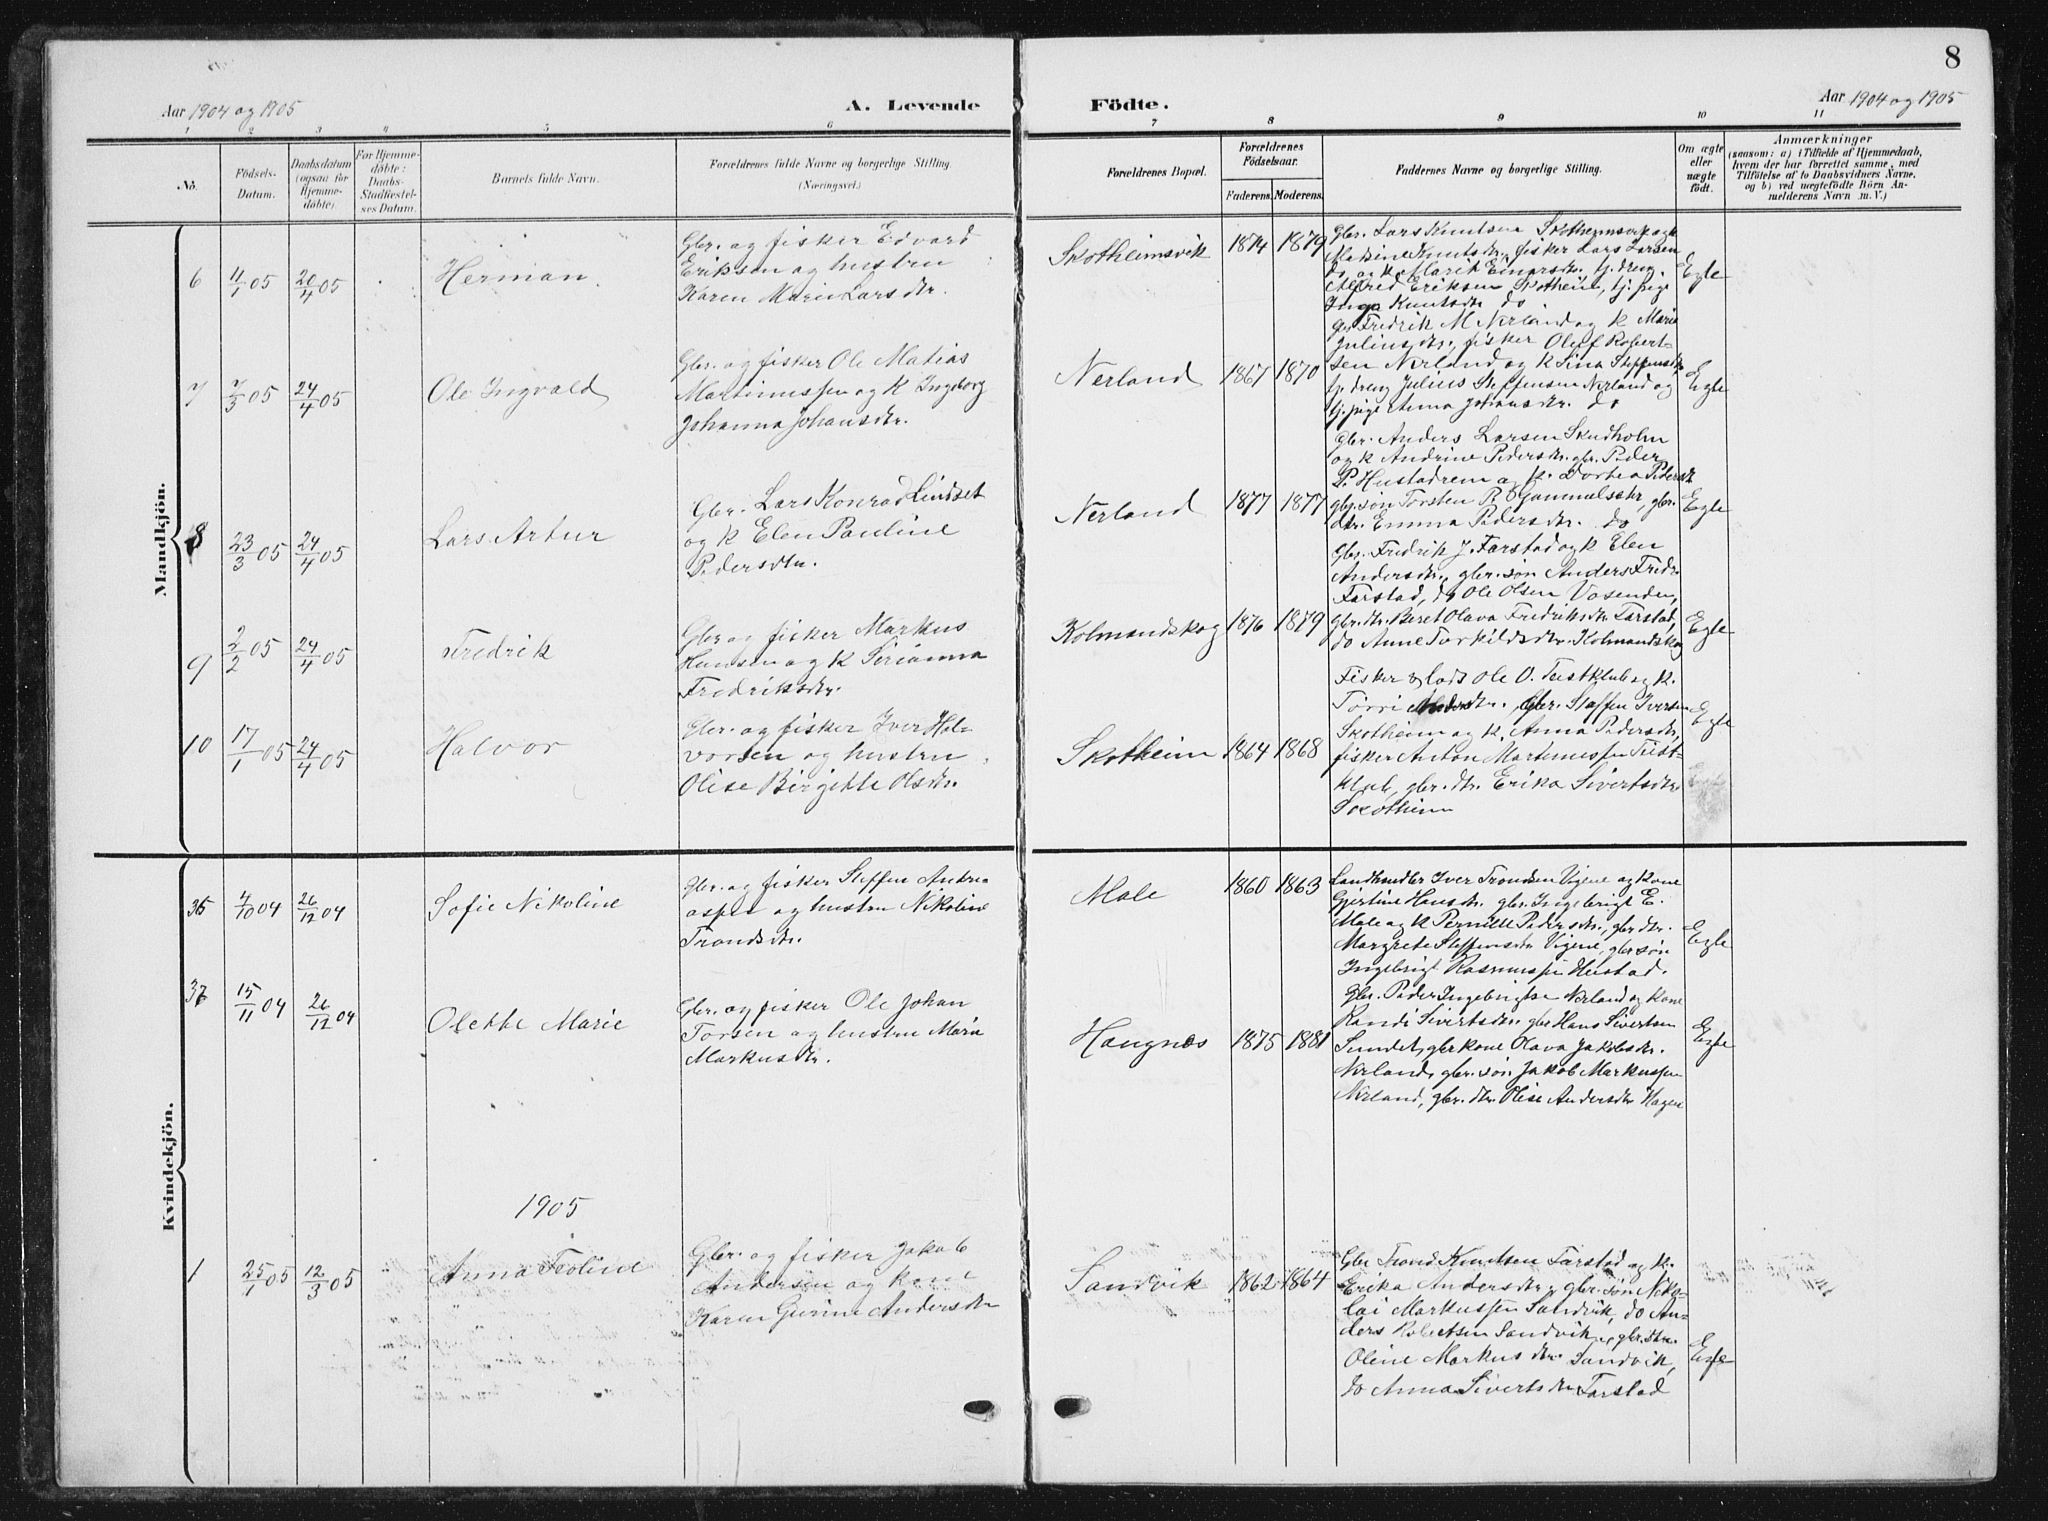 8
Aar 1904 og 1905
A. Levende
Födte.
Aar 1904 og 1905
1 2 3 4 5 6 7 8 9 10 11
No.
Födsels-
Datum.
Daabsdatum
(ogsaa for
Hjemme-
döbte).
For Hjemme-
döbte:
Daabs-
Stadfæstel-
ses Datum.
Barnets fulde Navn.
Forældrenes fulde Navne og borgerlige Stilling
(Næringsvei.)
Forældrenes Bopæl.
Forældrenes
Födselsaar.
Faderens.
Moderens.
Faddernes Navne og borgerlige Stilling.
Om ægte
eller
uægte
födt.
Anmærkninger
(saasom: a) i Tilfælde af Hjemmedaab,
hvem der har forrettet samme, med
Tilföielse af to Daabsvidners Navne,
og b) ved uægtefödte Börn An-
melderens Navn m. V.)
Mandkjön.
6
11/1 05
20/4 05
Herman.
Gbr. og fisker Edvard
Eriksen og hustru
Karen Marie Larsdtr.
Skotheimsvik
1874
1879
Gbr. Lars Knutsen Skotheimsvik og k
Madsine Knutsdtr., fisker Lars Larsen
do og k Marit Einarsdtr., tj. dreng
Alfred Eriksen Skotheim, tj. pige
Inga Knutsdtr do.
Egte
7
7/3 05
24/4 05
Ole Ingvald
Gbr. og fisker Ole Matias
Martinussen og k Ingeborg
Johanna Johansdtr.
Nerland
1867
1870
Gbr Fredrik M Nerland og k Marie
Juliusdtr., fisker Oluf Robert-
sen Nerland og k Sina Steffensdtr
tj. dreng Julius Steffensen Nerland og
tj. pige Anna Johansdtr. do
Egte
8
23/3 05
24/4 05
Lars Artur
Gbr. Lars Konrad Lindset
og k Elen Pauline
Pedersdtr.
Nerland
1877
1877
Gbr. Anders Larsen Skudholm
og k Andrine Pedersdtr. gbr. Peder
P. Hustadnem og k. Dortea Pedersdtr
gbr. søn Torsten P. Gammelsetr, gbr.
dtr. Emma Pedersdtr. do
Egte
9
2/2 05
24/4 05
Fredrik
Gbr og fisker Markus
Hansen og k Serianna
Fredriksdtr.
Kolmandskog
1876
1879
Gbr. Fredrik J. Farstad og k Elen
Andersdtr., gbr. søn Anders Fredr.
Farstad, do Ole Olsen Vasenden,
gbr. dtr. Beret Olava Fredriksdtr Farstad,
do Anne Torkildsdtr. Kolmandskog
Egte
10
17/1 05
24/4 05
Halvor
Gbr. og fisker Iver Hal-
vorsen og hustru
Olise Birgitte Olsdtr.
Skotheim
1864
1868
Fisker & lods Ole O. Teistklub og k.
Torri Andersdtr. Gbr. Staffen Ivertsen
Skotheim og k. Anna Pedersdtr,
fisker Anton Martinussen Teist-
klub, gbr. dtr. Erika Sivertsdtr
Skotheim
Egte
Kvindekjön.
36
4/10 04
26/12 04
Sofie Nikoline
Gbr. og fisker Steffen Andre-
assen og hustru Nikoline
Trondsdtr.
Male
1860
1863
Landhandler Iver Trondsen Vigene og kone
Gjertine Hansdtr. gbr. Ingebrigt E.
Male og k Pernille Pedersdtr., gbr dtr.
Margrete Steffensdtr Vigene, gbr søn
Ingebrigt Rasmussen Hustad.
Egte
37
15/11 04
26/12 04
Olette Marie
Gbr. og fisker Ole Johan
Torsen og hustru Marie
Markusdtr.
Haugnæs
1875
1881
Gbr. Peder Ingebrigtsen Nerland og kone
Randi Sivertsdtr. gbr Hans Sivertsen
Sundet, gbr kone Olava Jakobsdtr.
Nerland, gbr. søn Jakob Markussen
Nerland, gbr. dtr. Olise Andersdtr Hagen
Egte
1905
1
25/1 05
12/3 05
Anna Teoline
Gbr. og fisker Jakob
Andersen og kone
Karen Gurine Andersdtr
Sandvik
1862
1864
Gbr Trond Knudsen Farstad og k.
Erika Andersdtr., gbr. søn Niko-
lai Markussen Sandvik, do An-
ders Robertsen Sandvik, gbr. dtr.
Oline Markusdtr. Sandvik,
do Anna Sivertsdtr Farstad
Egte